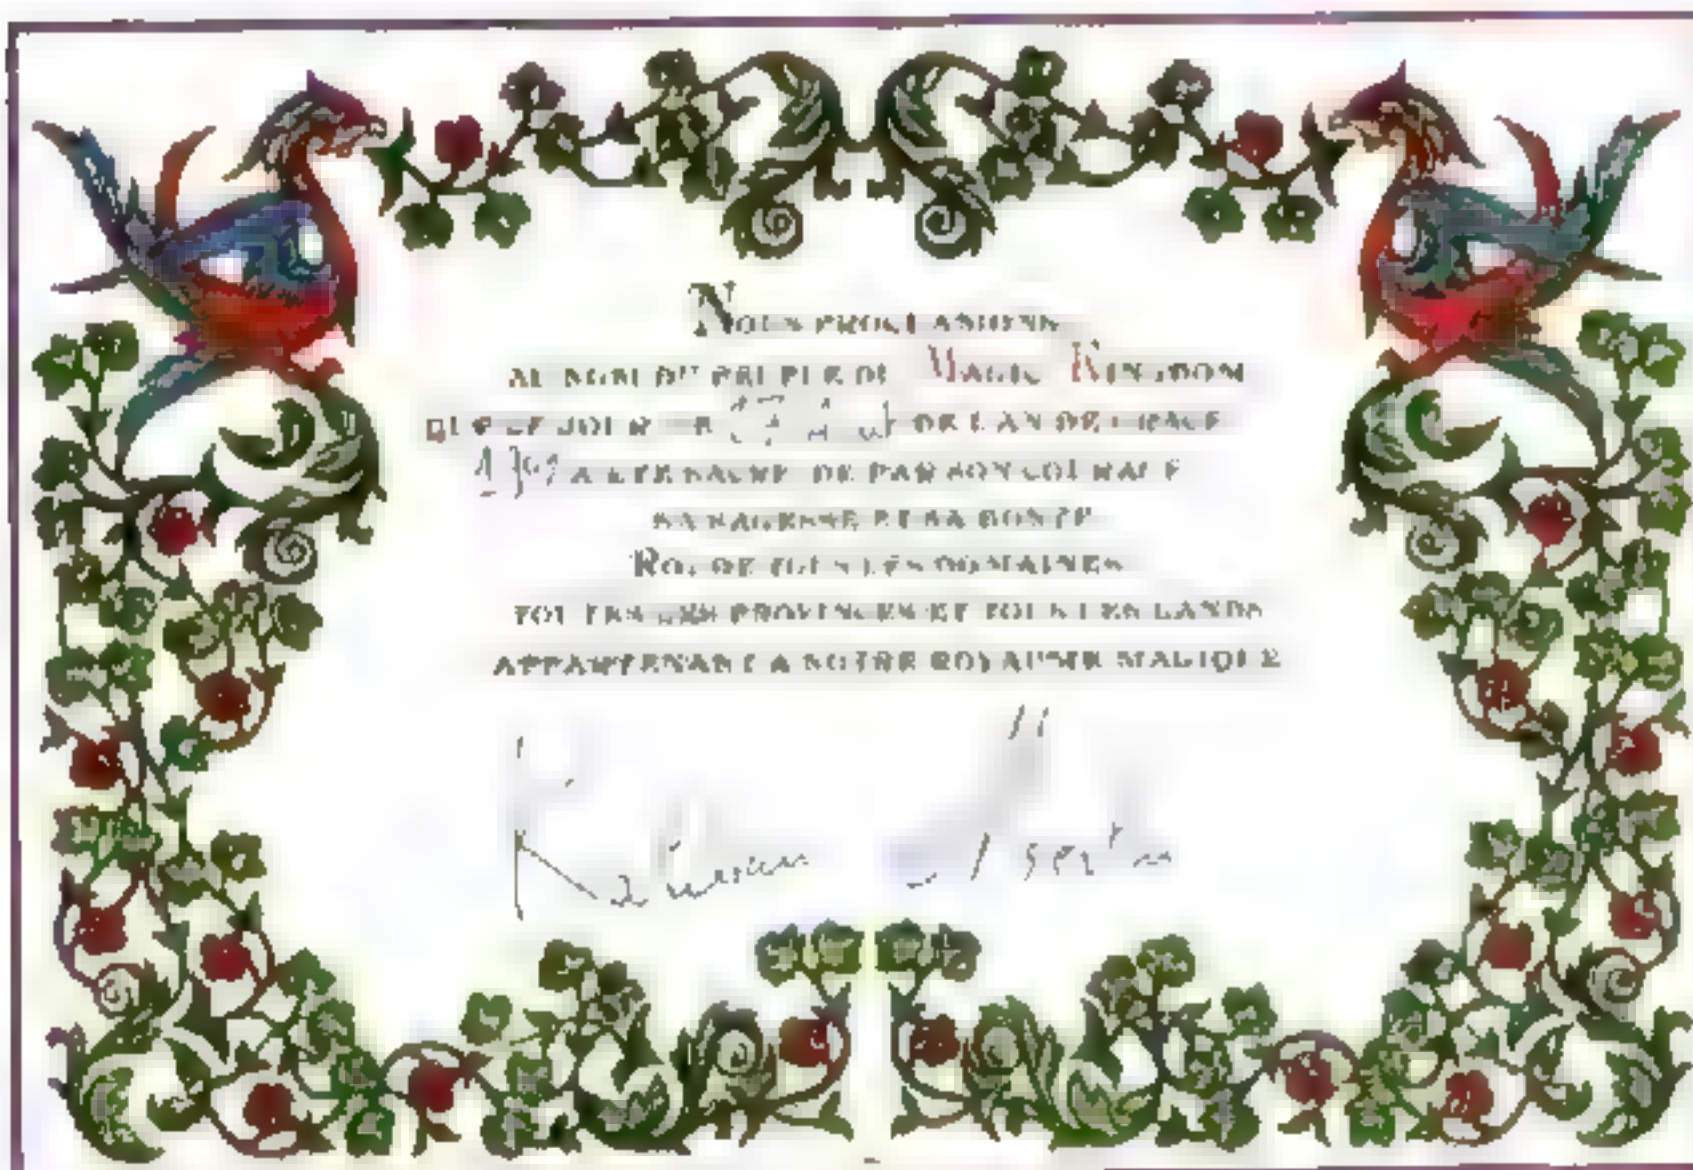 NOUS PROCLAMONS
AU NOM DU PEUPLE DU MAGIC KINGDOM
QUE LE JOUR DE DE L'AN DE GRACE
A ETE SACRE DE PAR SON COURAGE
SA SAGESSE ET SA BONTE
ROI DE TOUS LES DOMAINES
TOUTES LES PROVINCES ET TOUS LES LANDS
APPARTENANT A NOTRE ROYAUME MAGIQUE